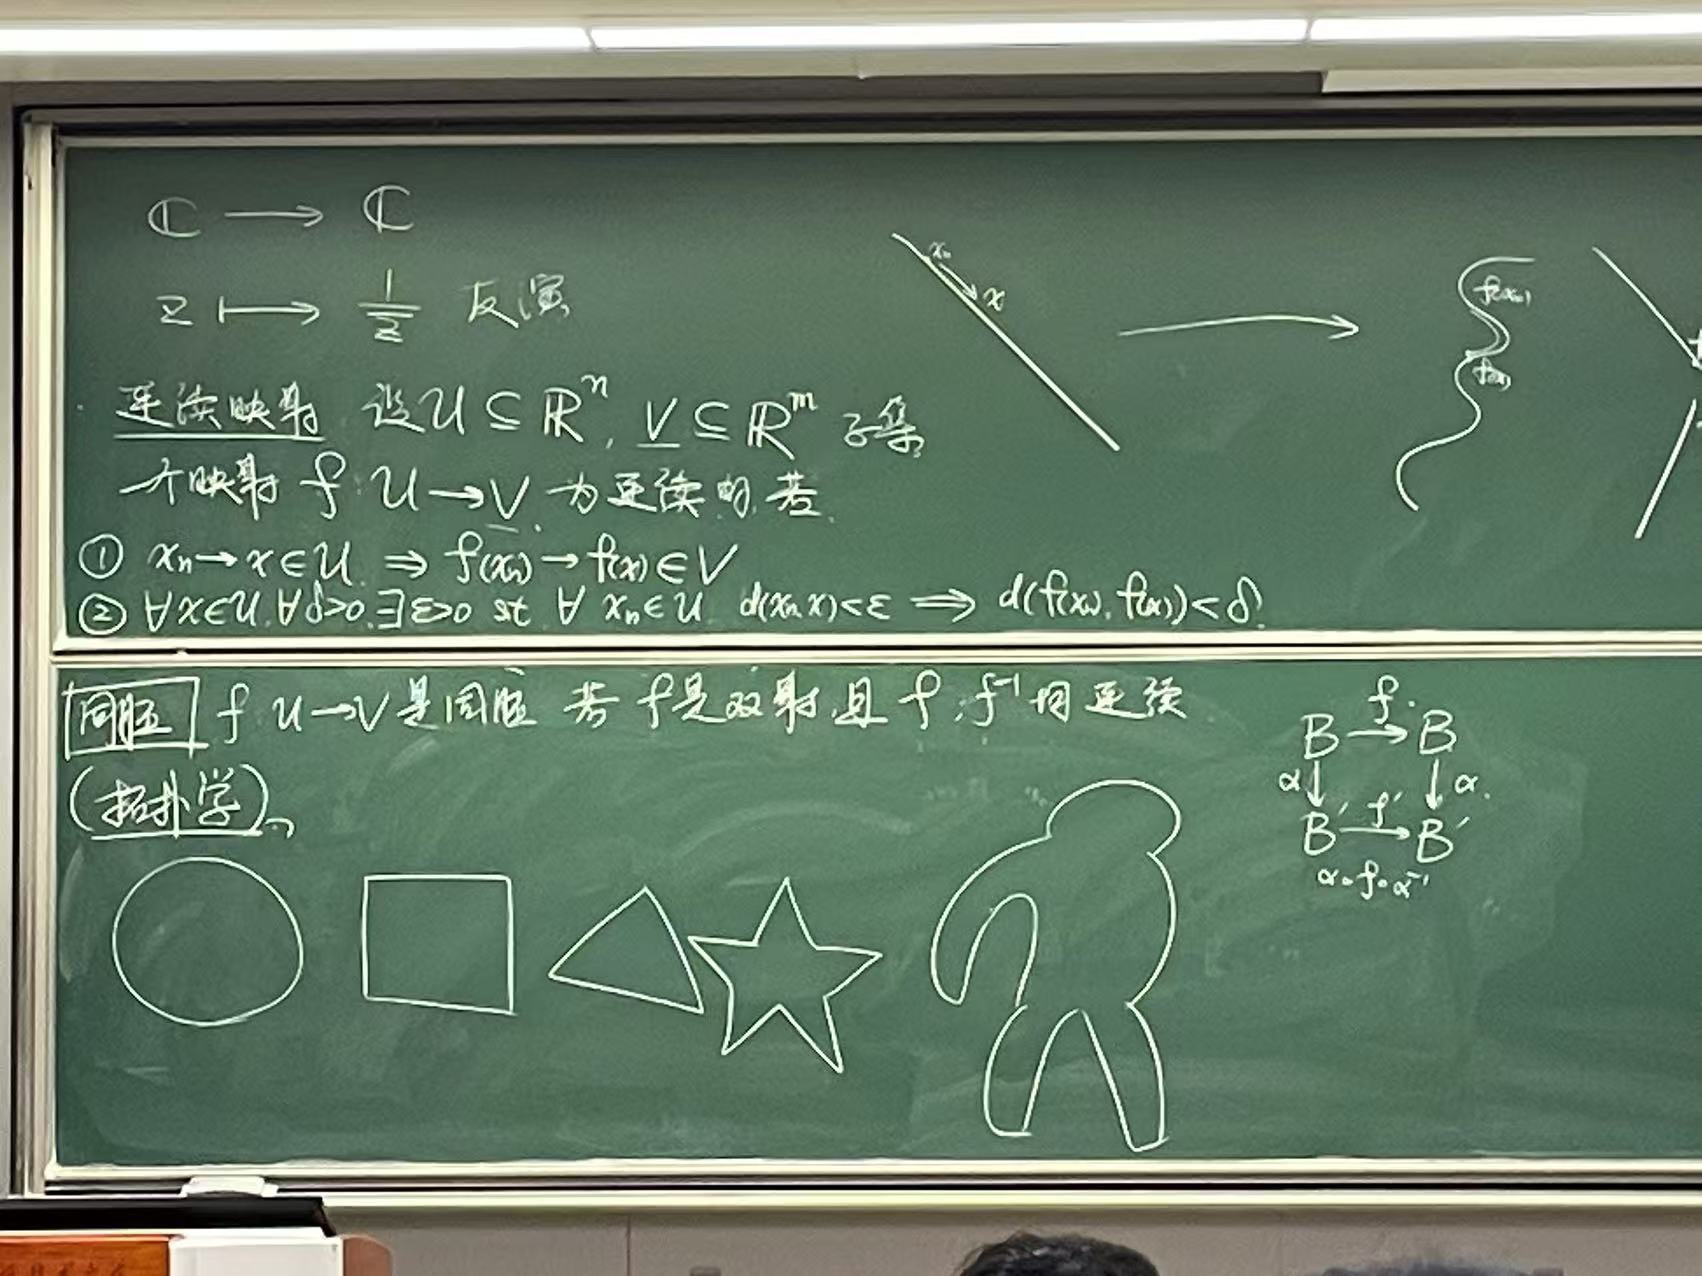 ℂ → ℂ
z ↦ 1/z 反演
连续映射 设 U ⊆ ℝⁿ, V ⊆ ℝᵐ 子集
一个映射 f: U → V 为连续的, 若
① xₙ → x ∈ U ⇒ f(xₙ) → f(x) ∈ V
② ∀x∈U, ∀δ>0, ∃ε>0 st ∀ xₙ∈U d(xₙ,x)<ε ⟹ d(f(xₙ), f(x))<δ
xₙ
x
f(xₙ)
f(x)
同胚 f U → V 是同胚 若 f是双射,且 f, f⁻¹ 均连续
(拓扑学)
f
B → B
α ↓ ↓ α
f′
B′ → B′
α∘f∘α⁻¹